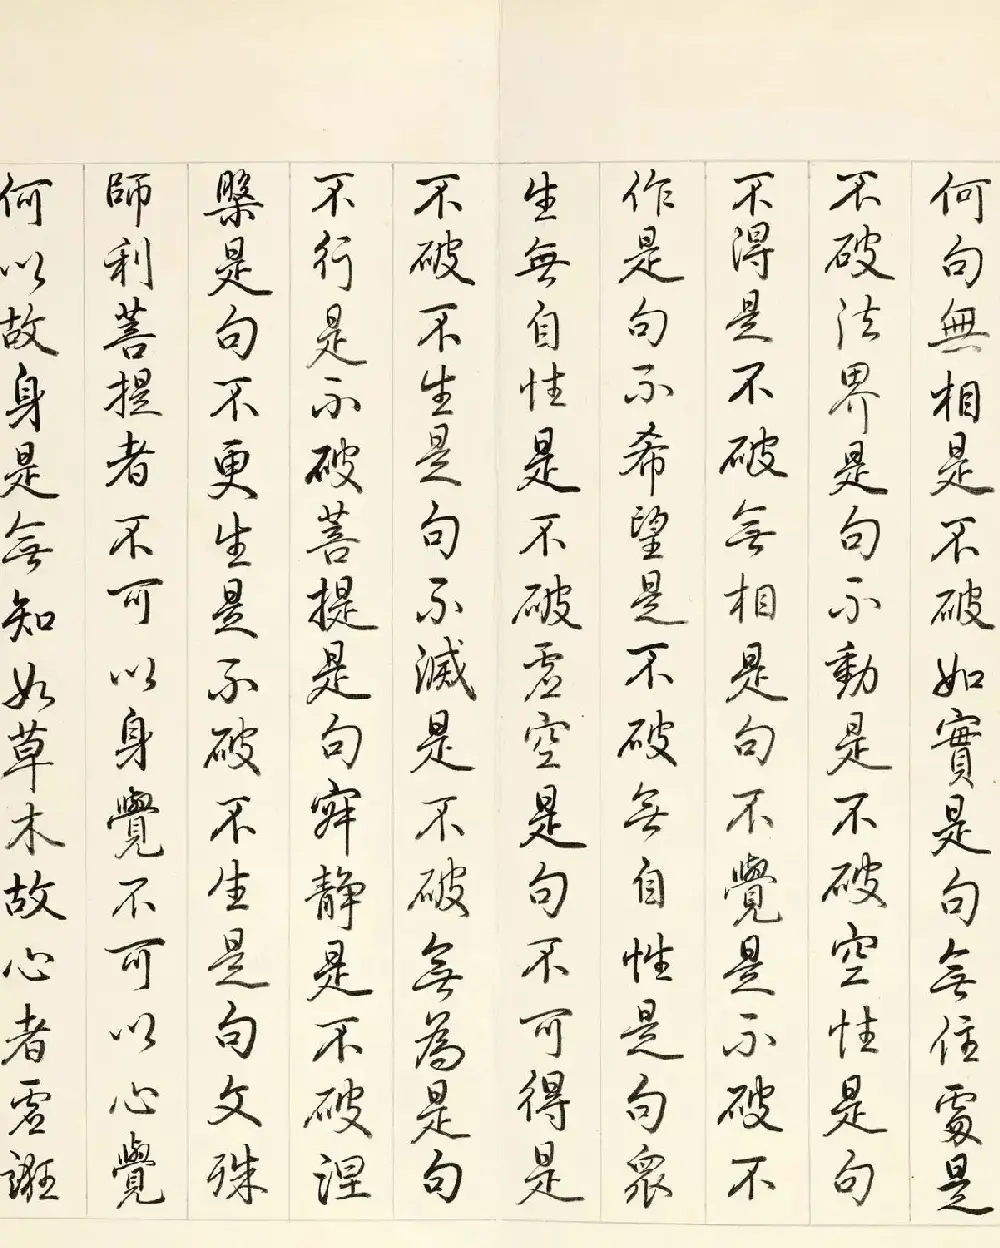 何句無相是不破如實是句無住處是
不破法界是句不動是不破空性是句
不得是不破無相是句不覺是不破不
作是句不希望是不破無自性是句眾
生無自性是不破虛空是句不可得是
不破不生是句不滅是不破無為是句
不行是不破菩提是句寂靜是不破涅
槃是句不更生是不破不生是句文殊
師利菩提者不可以身覺不可以心覺
何以故身是無知如草木故心者虛誑